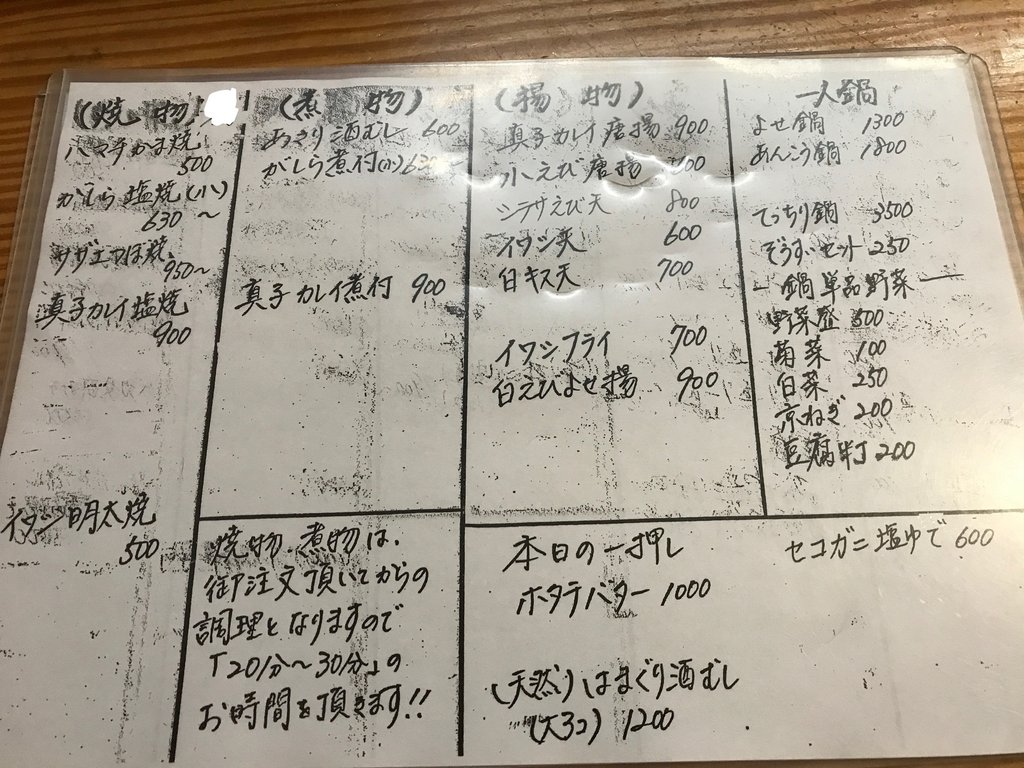 (焼物
ハマチかま焼
500
がしら塩焼(小)
630〜
サザエつぼ焼
950〜
真子カレイ塩焼
900
イワシ明太焼
500
(煮物)
あさり酒むし 600
がしら煮付(小)630
真子カレイ煮付 900
(揚物)
真子カレイ唐揚 900
小えび唐揚
シラサえび天 800
イワシ天 600
白キス天 700
イワシフライ 700
白えびよせ揚 900
一人鍋
よせ鍋 1300
あんこう鍋 1800
てっちり鍋 3500
ぞうすいセット 250
鍋単品野菜
野菜盛 500
菊菜 100
白菜 250
京ねぎ 200
豆腐半丁 200
焼物、煮物は、
御注文頂いてからの
調理となりますので
「20分〜30分」の
お時間を頂きます!!
本日の一押し
ホタテバター 1000
(天然)はまぐり酒むし
(大3コ) 1200
セコガニ塩ゆで 600